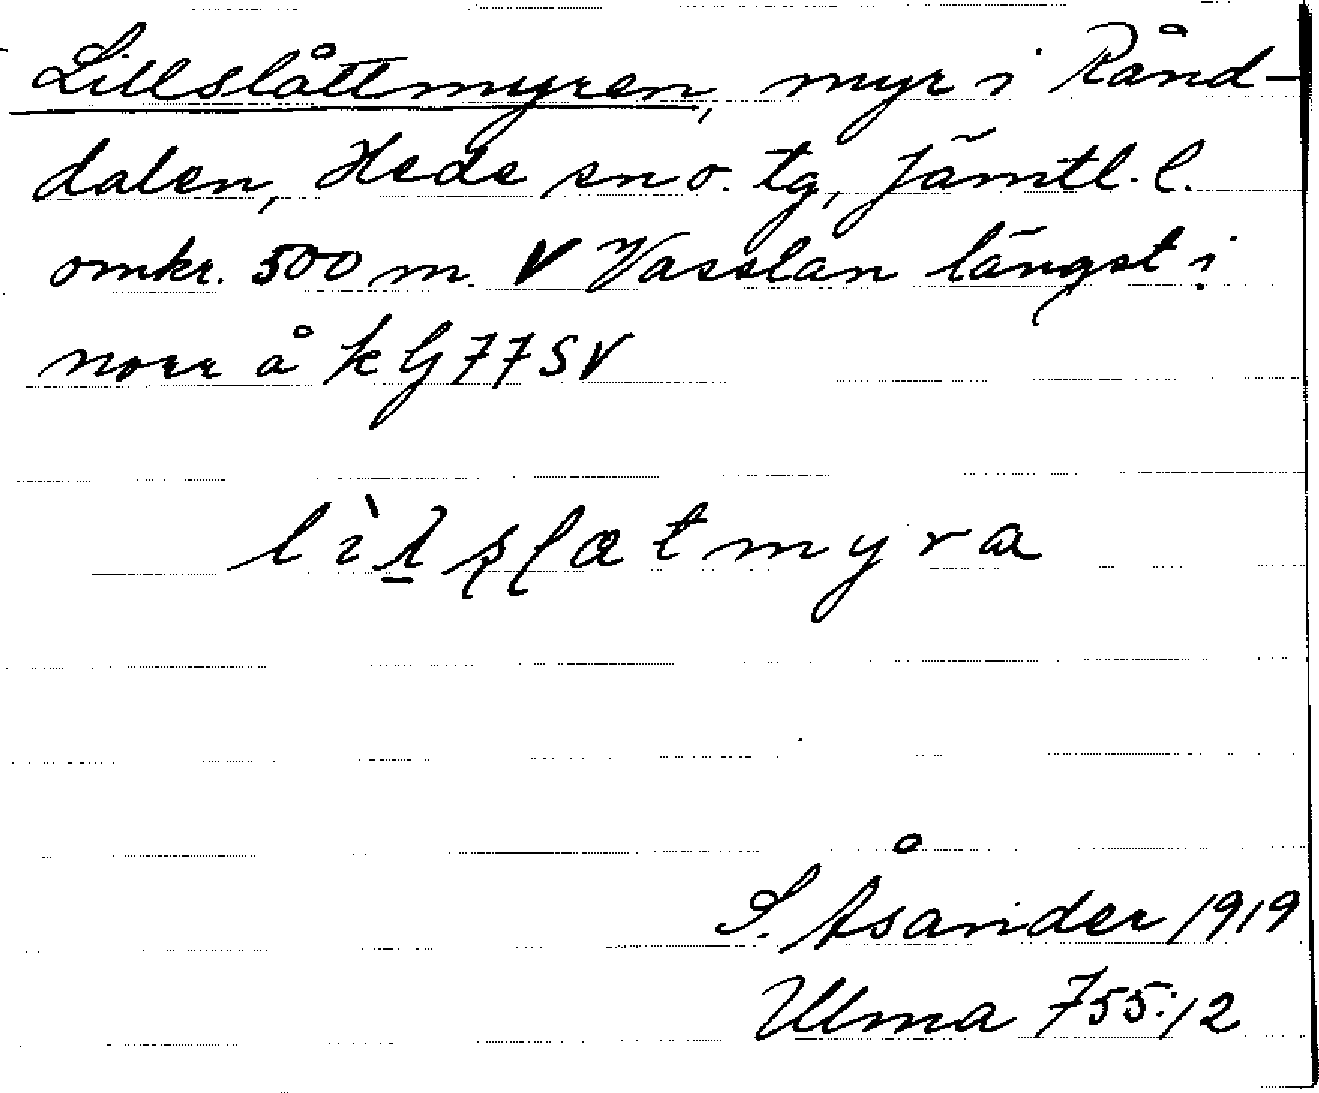 Lillslåttmyren, myr i Rånd-
dalen, Hede sn o. tg, Jämtl. l.
omkr. 500 m. V Vasslan längst i
norr å k G 77 SV
S. Åsander 1919
Ulma 755:12